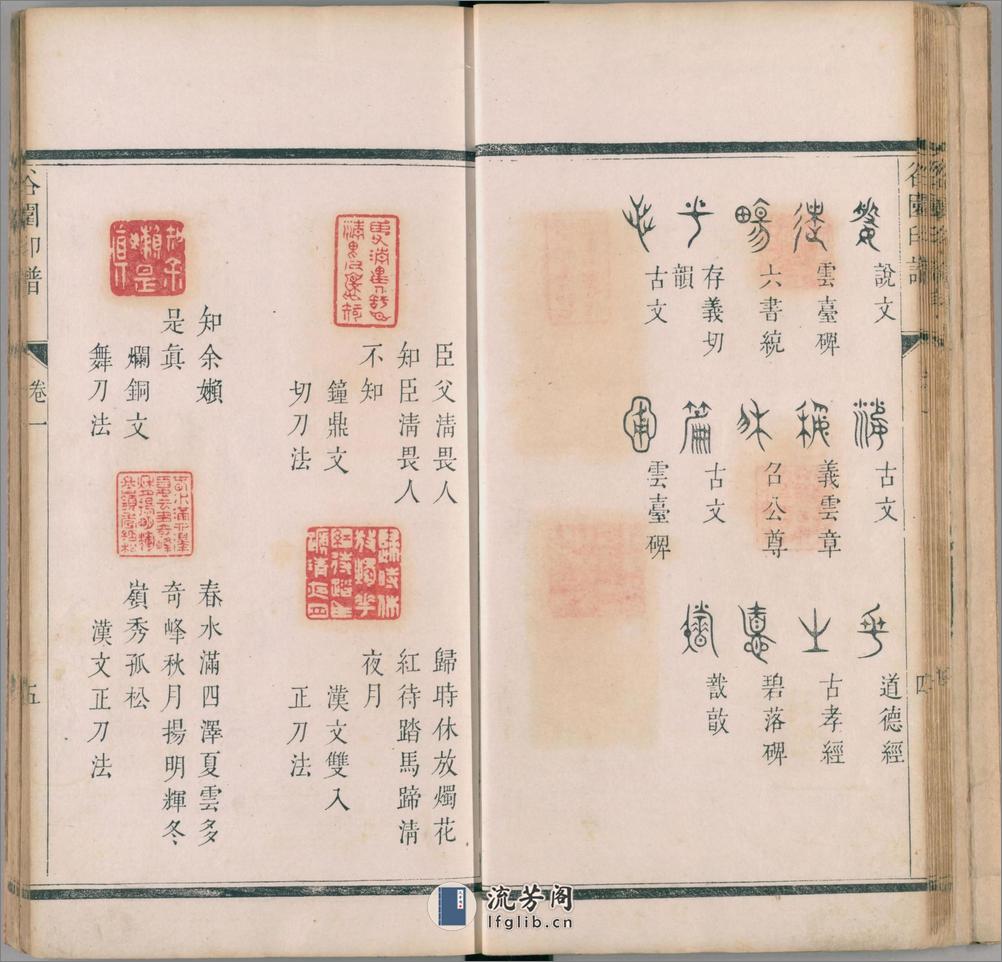 說文
雲臺碑
六書統
存義切
韻
古文
古文
義雲章
召公尊
古文
雲臺碑
道德經
古孝經
碧落碑
臣父淸畏人
知臣淸畏人
不知
鐘鼎文
切刀法
歸時休放燭花
紅待踏馬蹄淸
夜月
漢文雙入
正刀法
知余嬾
是眞
爛銅文
舞刀法
春水滿四澤夏雲多
奇峰秋月揚明輝冬
嶺秀孤松
漢文正刀法
谷園印譜
卷一
五
流芳阁
lfglib.cn